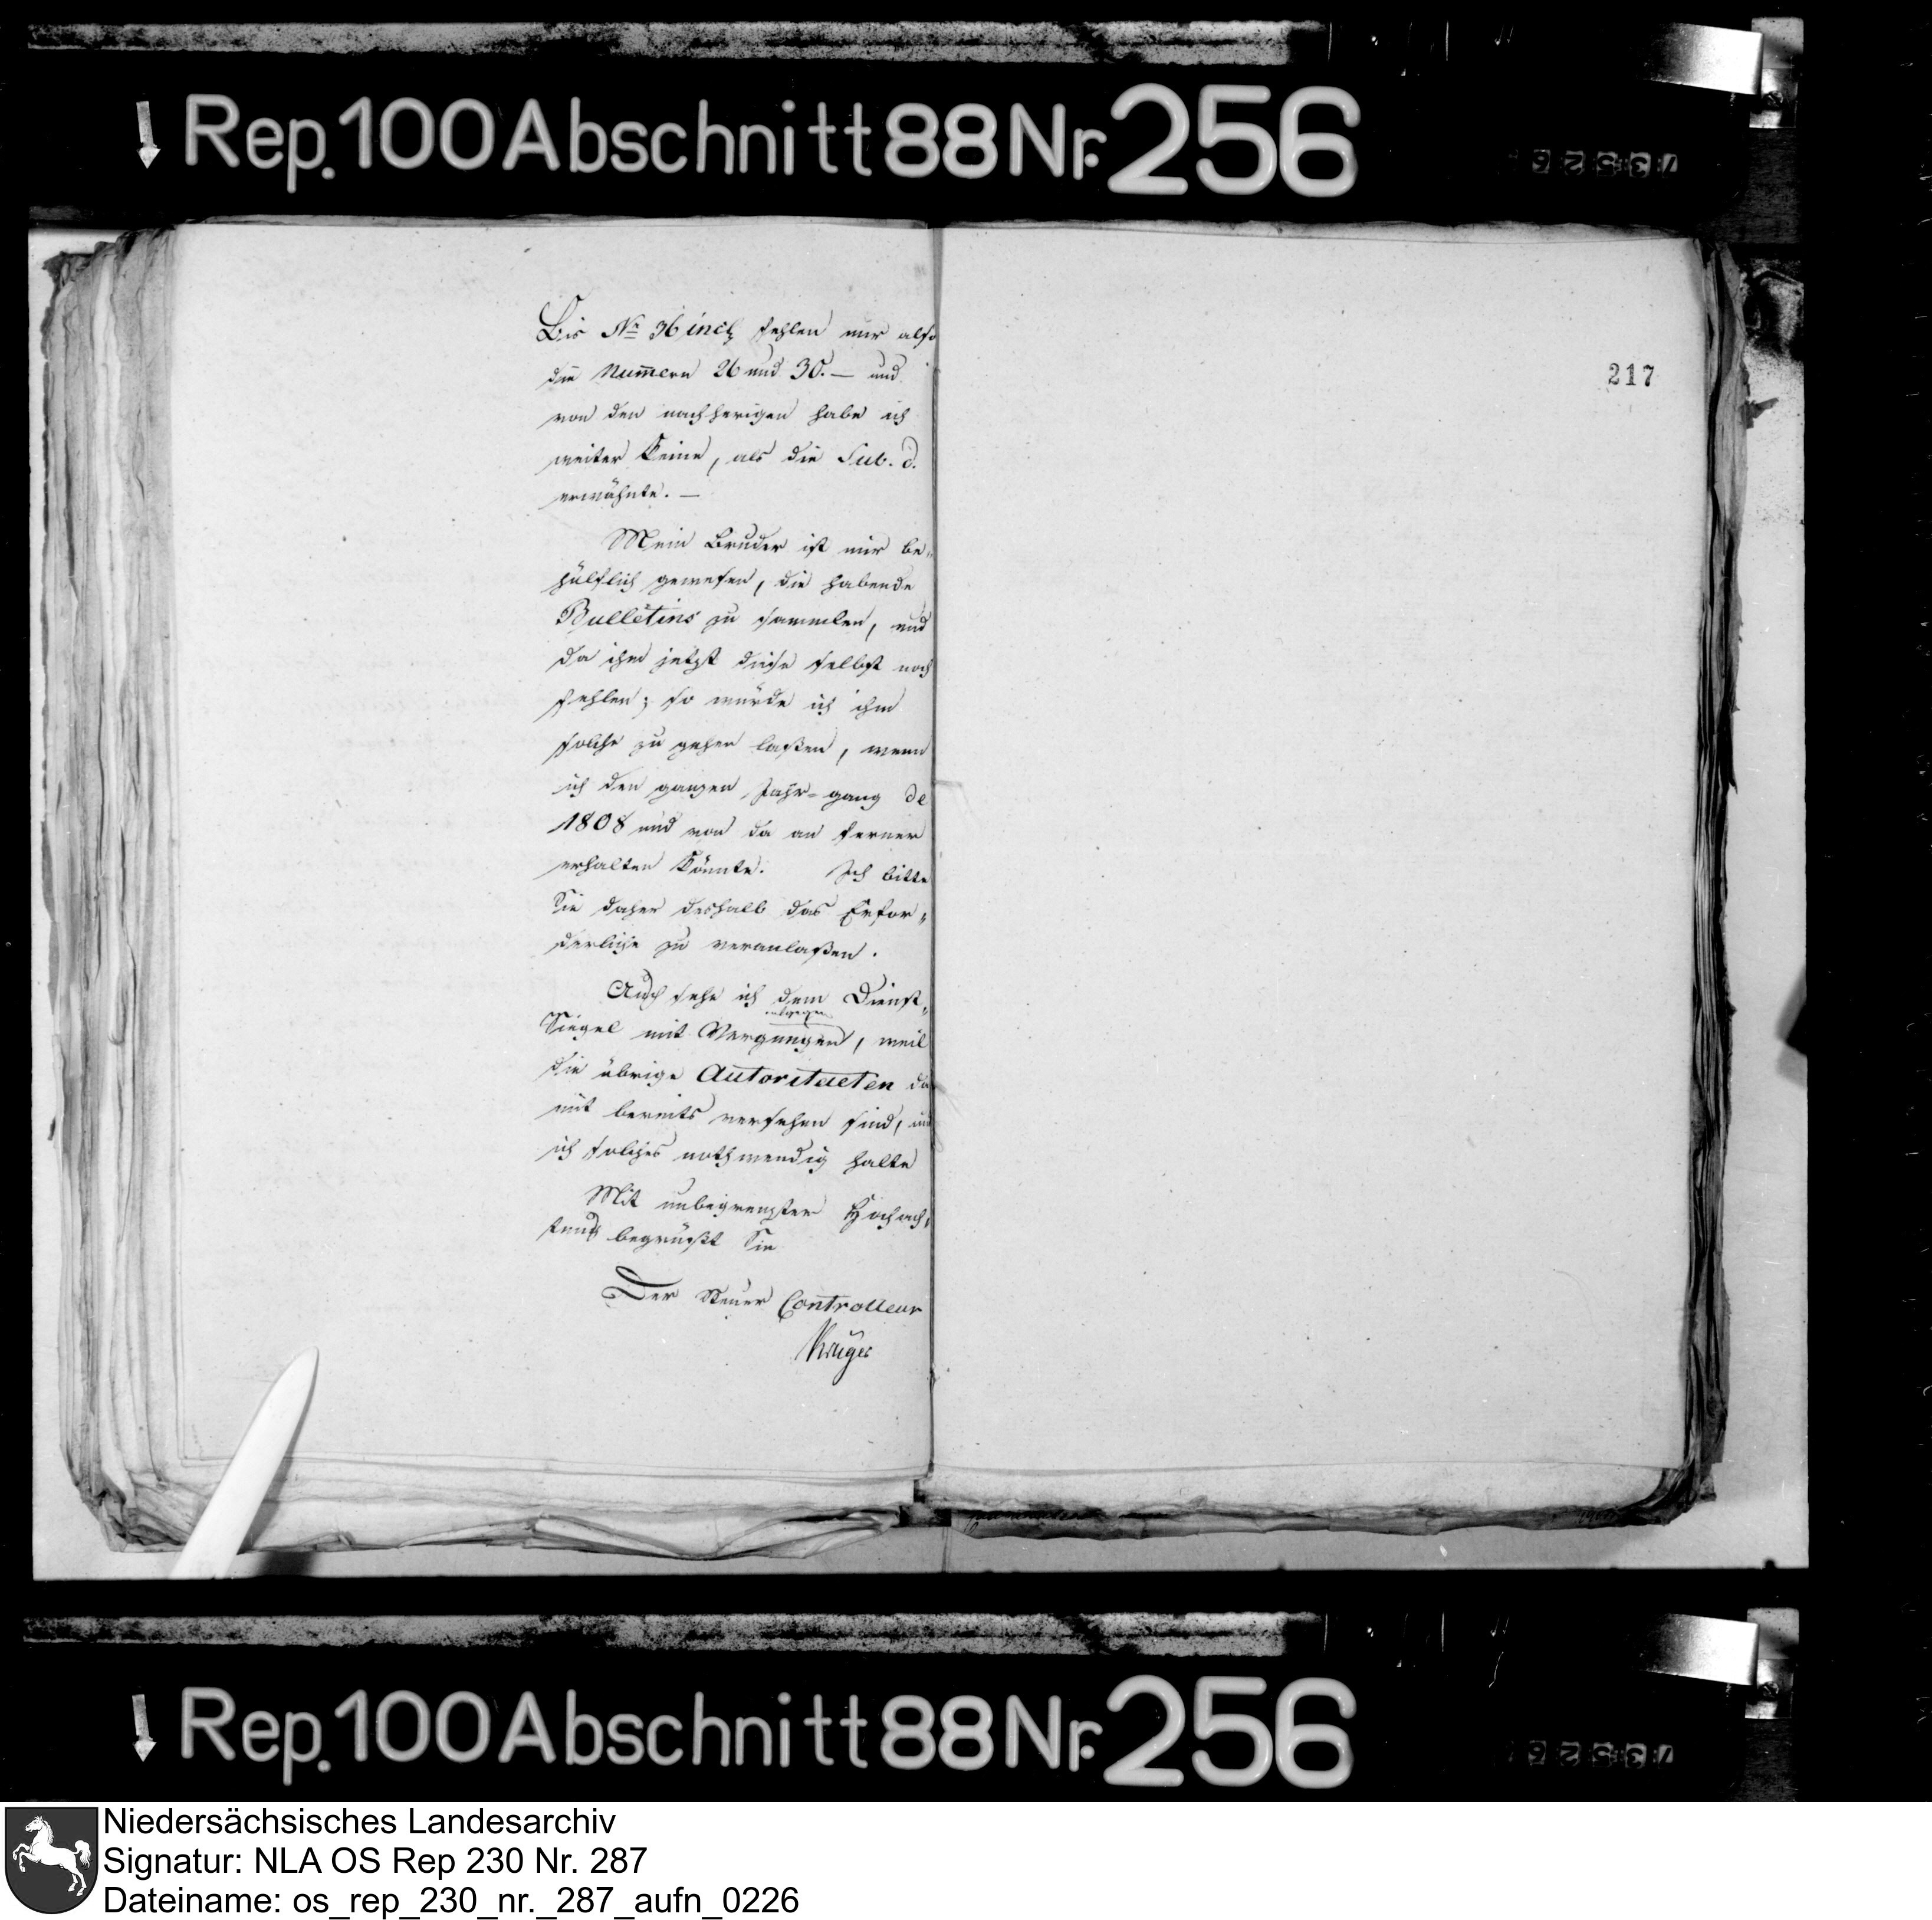 Rep. 100 Abschnitt 88 Nr. 256
Bis No 36 incl fehlen mir also
die Num̄ern 26 und 30. — und
von den nachherigen habe ich
weiter keine, als die Sub. d.
erwähnte. —
Mein Bruder ist mir be„
hülflich gewesen, die habende
Bulletins zu sammlen, und
da ihm jetzt diese selbst noch
fehlen; so würde ich ihm
solche zu gehen laßen, wenn
ich den ganzen Jahr=gang de
1808 und von da an ferner
erhalten könnte. Ich bitte
Sie daher deshalb das Erfor„
derliche zu veranlaßen.
Auch sehe ich dem Dienst„
Siegel mit Vergnügen entgegen, weil
die übrige Autoritaeten da
mit bereits versehen sind, und
ich solches nothwendig halte
Mit unbegrenzter Hochach„
tung begrüßt Sie
Der Steuer Controlleur
Krüger
217
Rep. 100 Abschnitt 88 Nr. 256
Niedersächsisches Landesarchiv
Signatur: NLA OS Rep 230 Nr. 287
Dateiname: os_rep_230_nr._287_aufn_0226